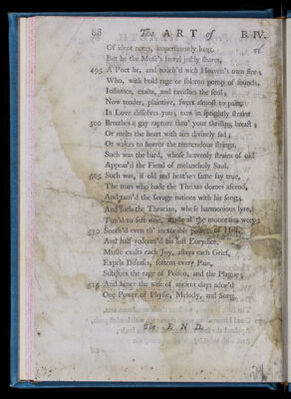 88 The ART of B. IV.
Of ident notes, impertinently long.
But he the Muse's laurel justly shares,
495 A Poet he, and touch'd with Heaven's own fire;
Who, with bold rage or solemn pomp of sounds,
Inflames, exalts, and ravishes the soul;
Now tender, plaintive, sweet almost to pain,
In Love dissolves you; now in sprightly strains
500 Breathes a gay rapture thro' your thrilling breast;
Or melts the heart with airs divinely sad;
Or wakes to horror the tremendous strings.
Such was the bard, whose heavenly strains of old
Appeas'd the Fiend of melancholy Saul.
505 Such was, if old and heathen fame say true,
The man who bade the Theban domes ascend,
And tam'd the savage nations with his song;
And such the Thracian, whose harmonious lyre,
Tun'd to soft woe, made all the mountains weep;
510 Sooth'd even th' inexorable powers of Hell,
And half redeem'd his lost Eurydice.
Music exalts each Joy, allays each Grief,
Expels Diseases, softens every Pain,
Subdues the rage of Poison, and the Plague;
515 And hence the wise of ancient days ador'd
One Power of Physic, Melody, and Song.
The END.